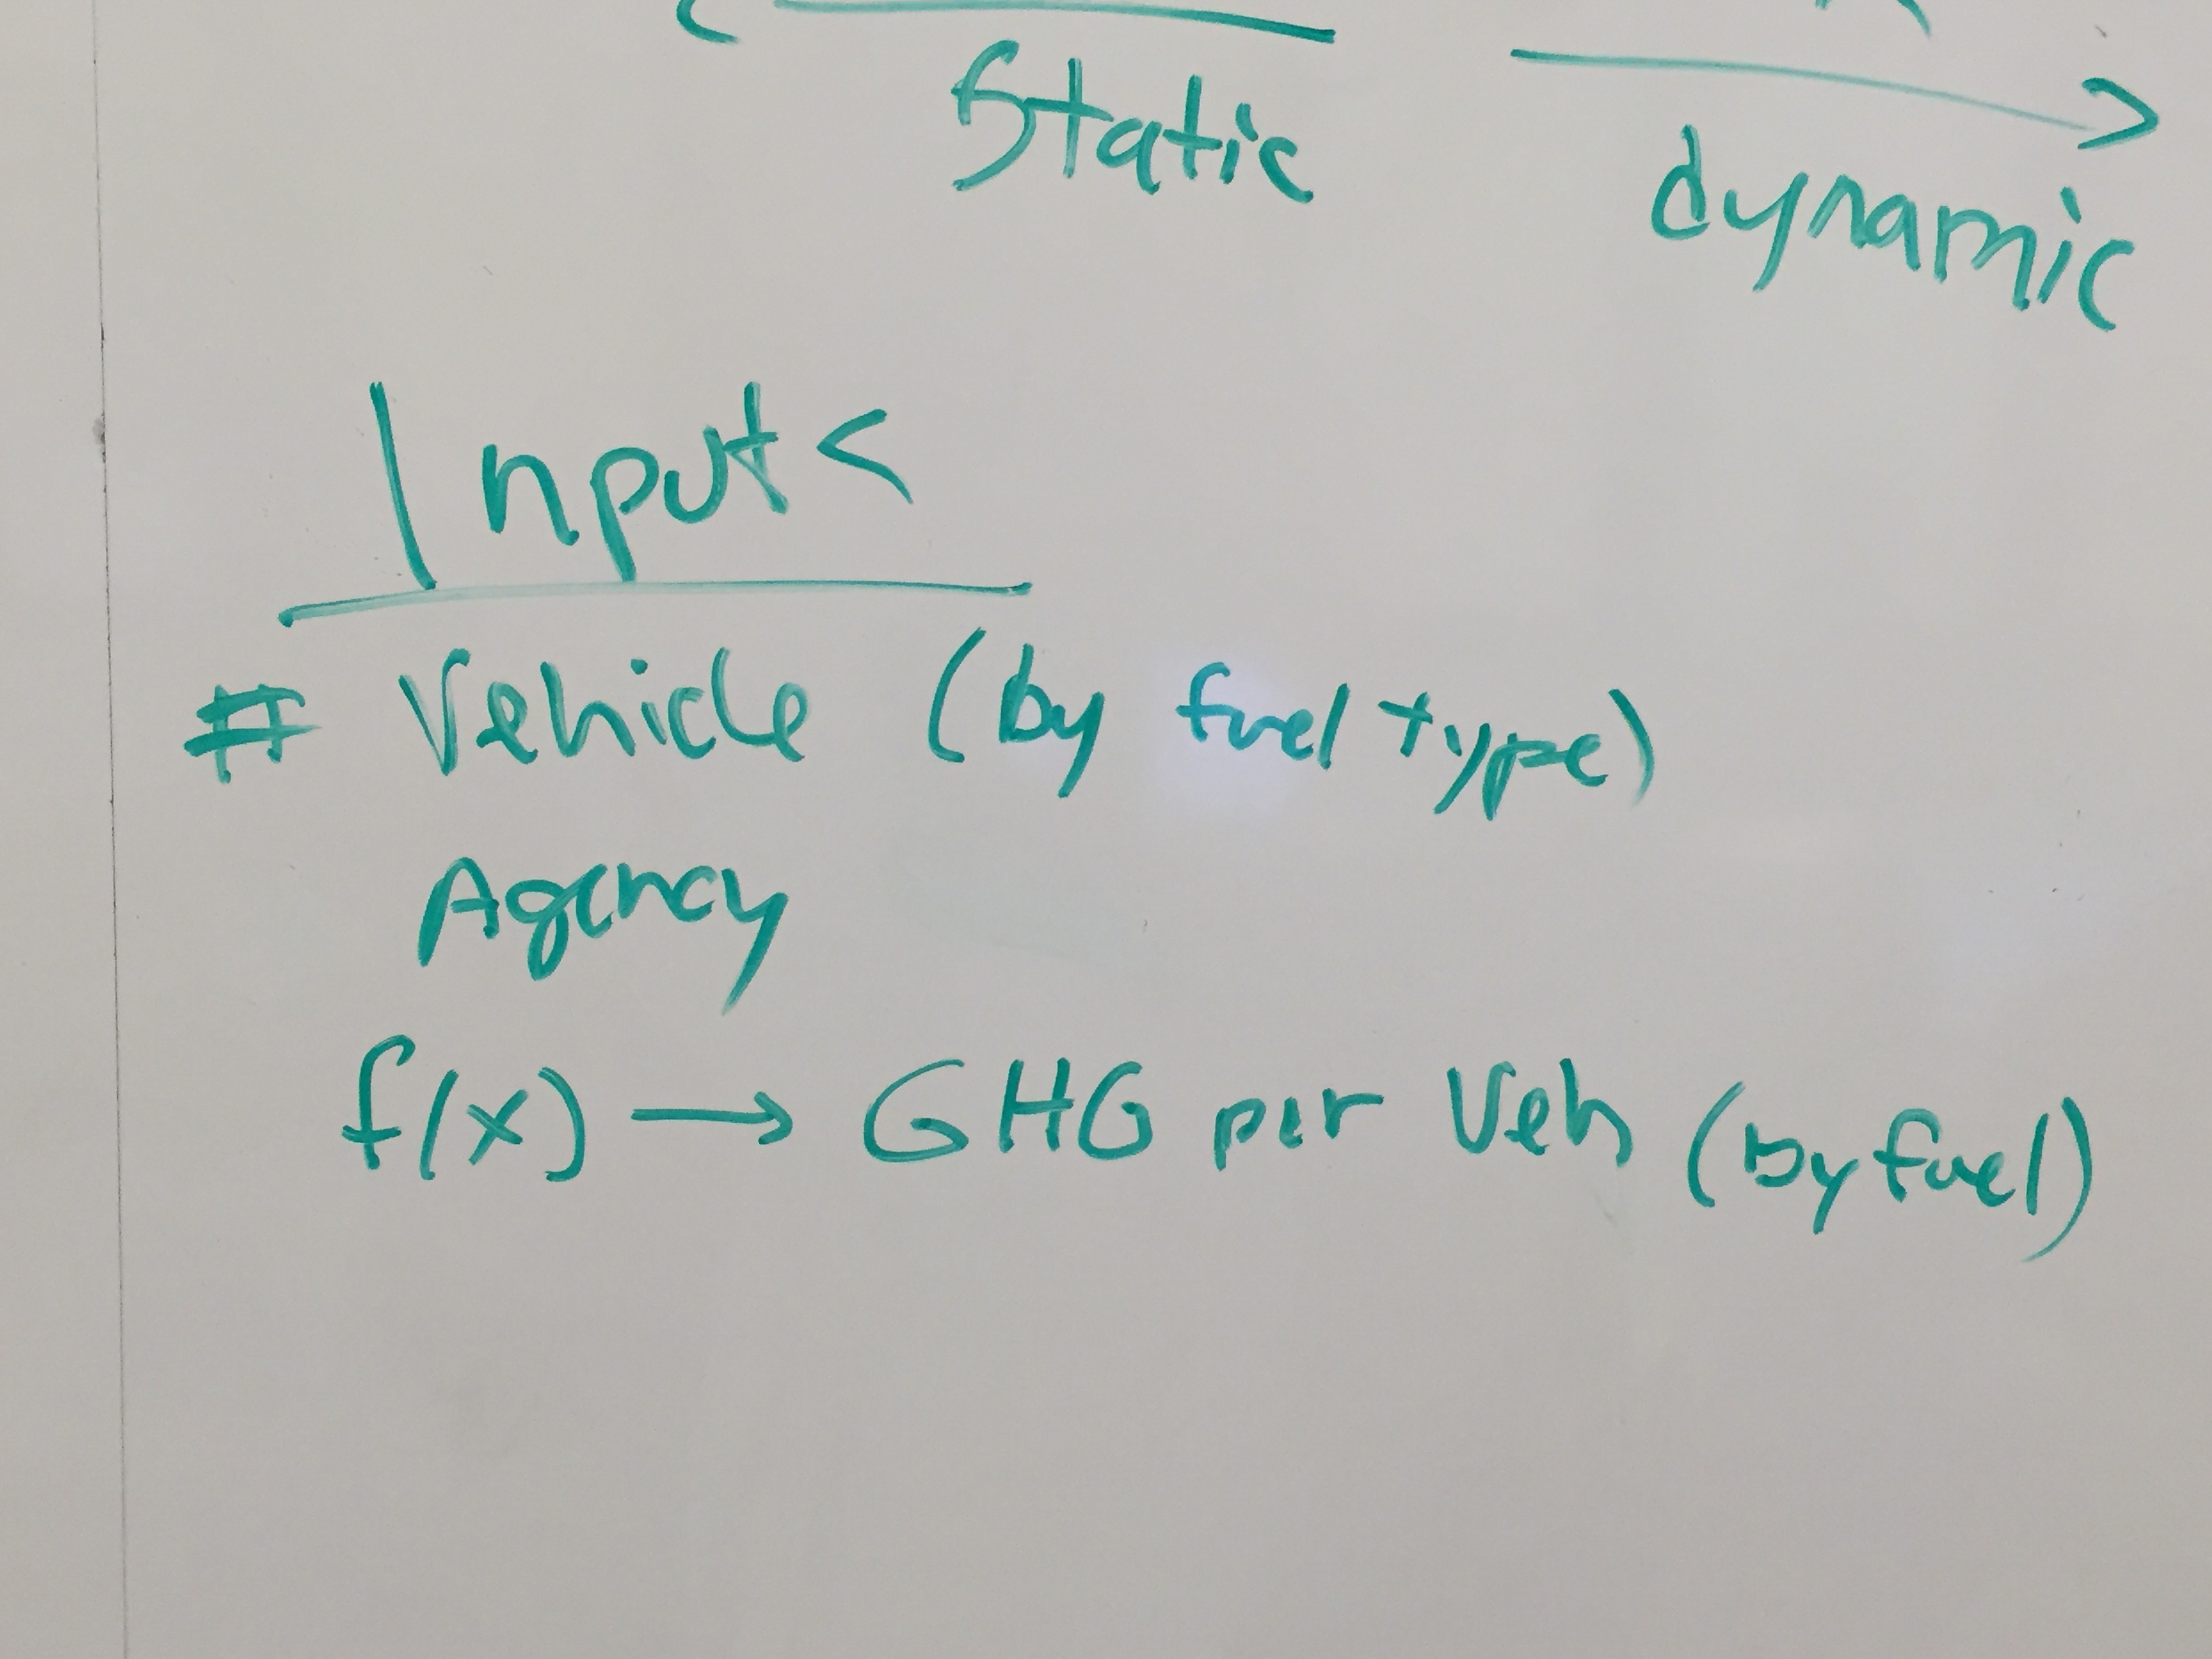 Static
dynamic
Input <
# Vehicle (by fuel type)
Agency
f(x) → GHG per Veh (by fuel)